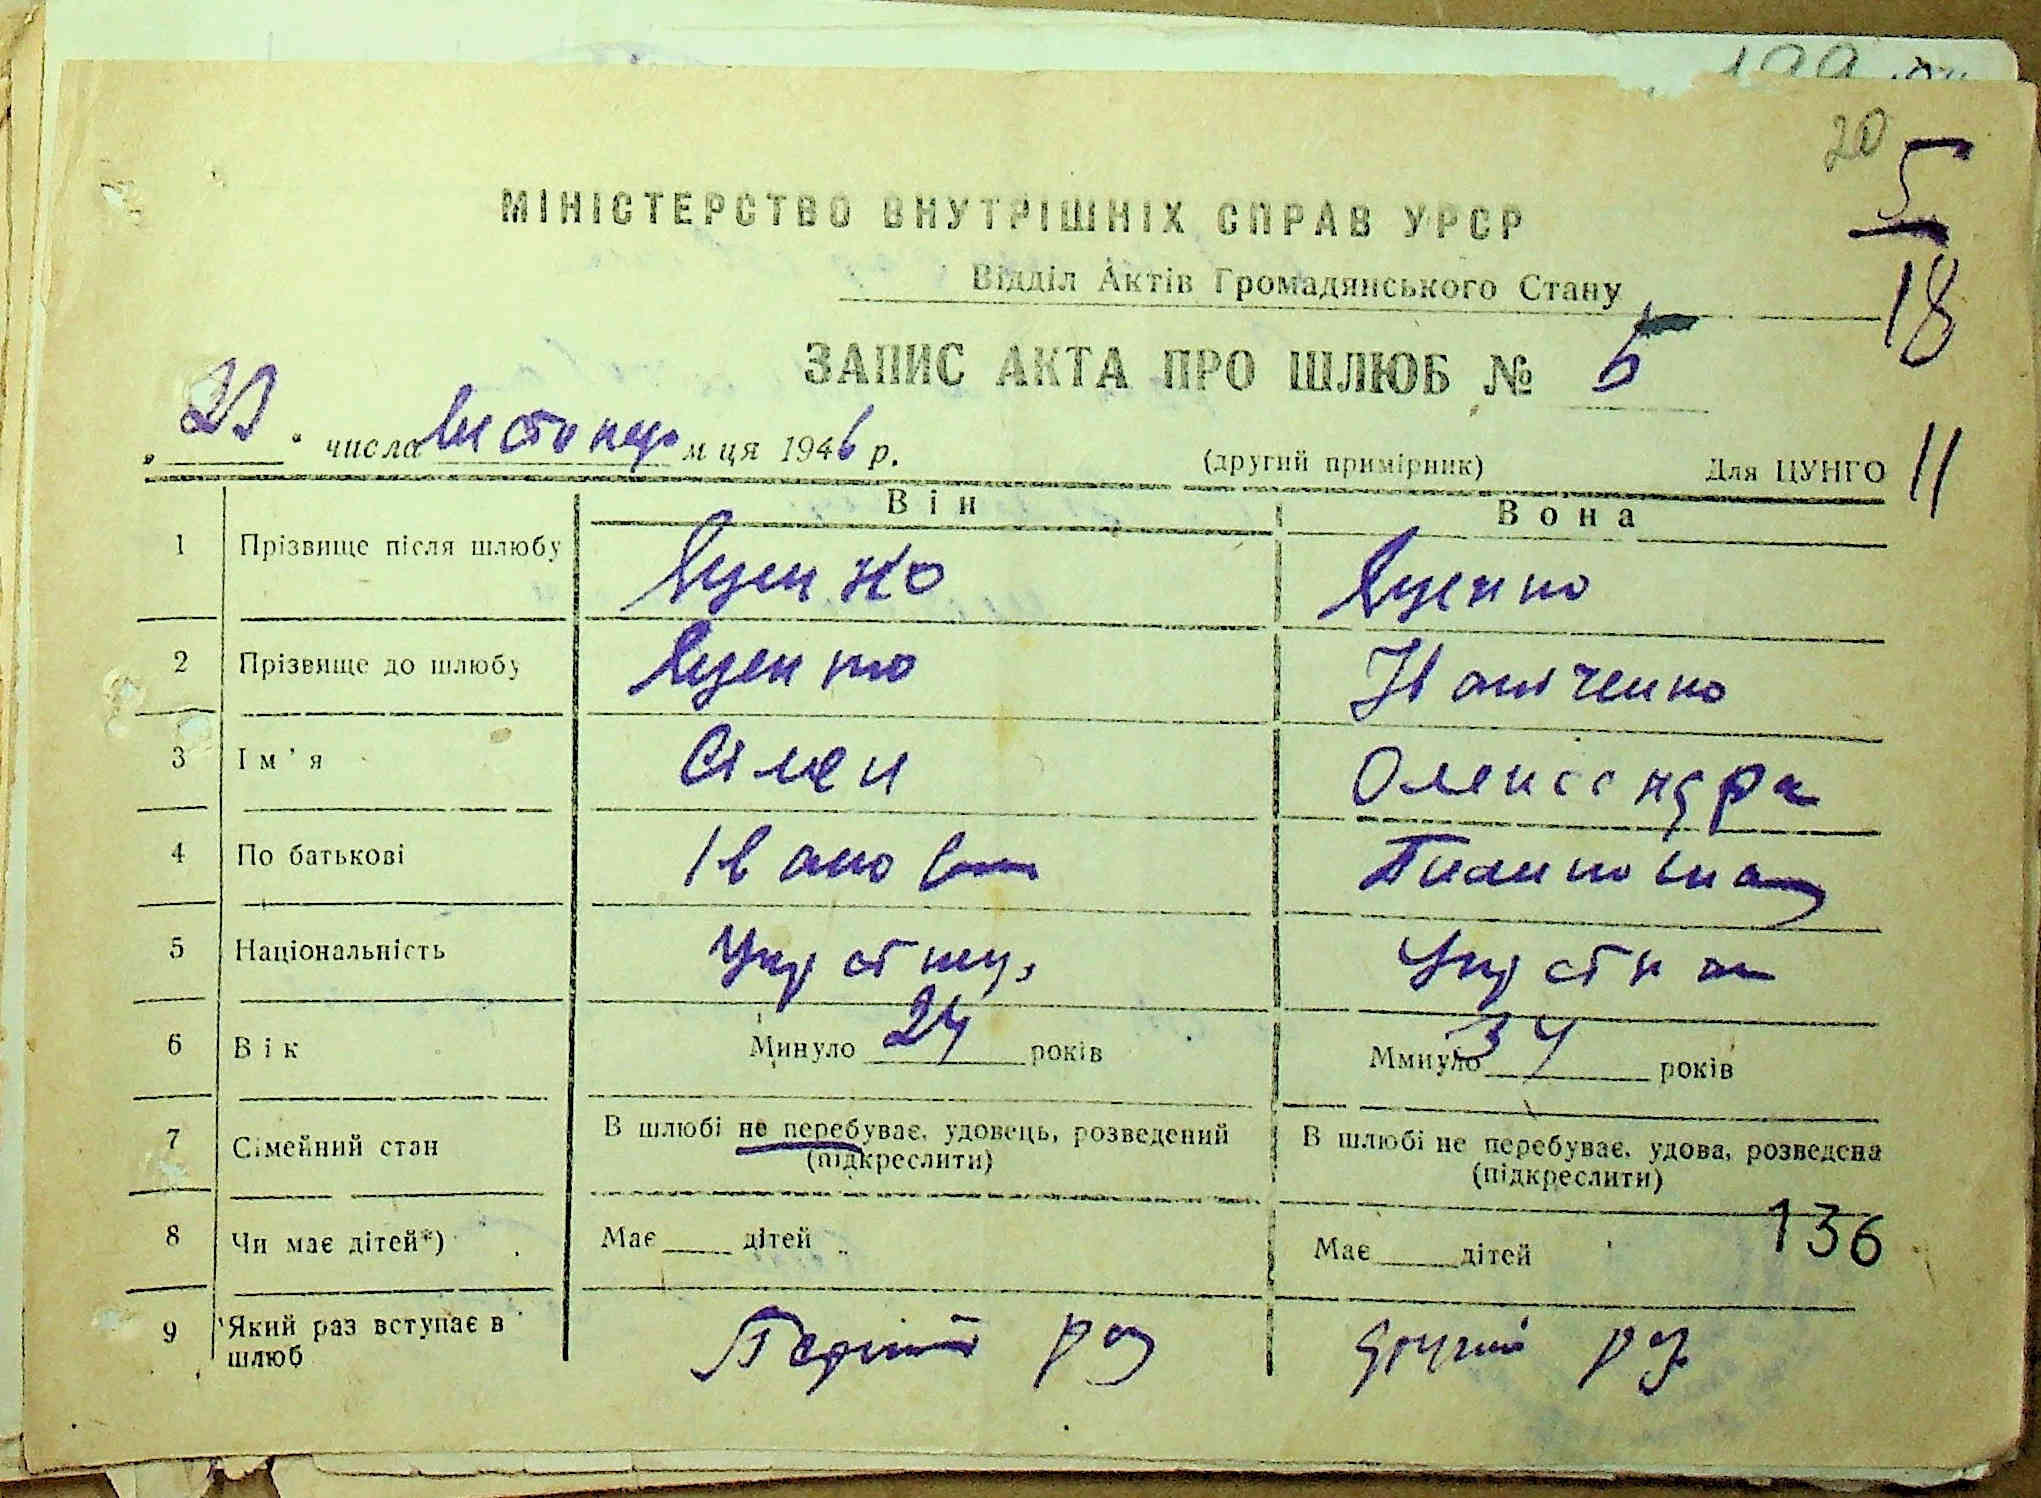 20
5
18
МІНІСТЕРСТВО ВНУТРІШНІХ СПРАВ УРСР
Відділ Актів Громадянського Стану
ЗАПИС АКТА ПРО ШЛЮБ № 5
„ " числа листопар м ця 1946 р.
(другий примірник) Для ЦУНГО 11
Він Вона
1 Прізвище після шлюбу Яценко Яценко
2 Прізвище до шлюбу Яценко Іваніченко
3 Ім'я Сімен Олександра
4 По батькові Іванов Пилиповна
5 Національність
6 Вік Минуло 24 років Ммнуло 34 років
7 Сімейний стан В шлюбі не перебуває, удовець, розведений (підкреслити) В шлюбі не перебуває, удова, розведена (підкреслити)
8 Чи має дітей*) Має дітей Має дітей 136
9 Який раз вступає в шлюб Перший раз другий раз